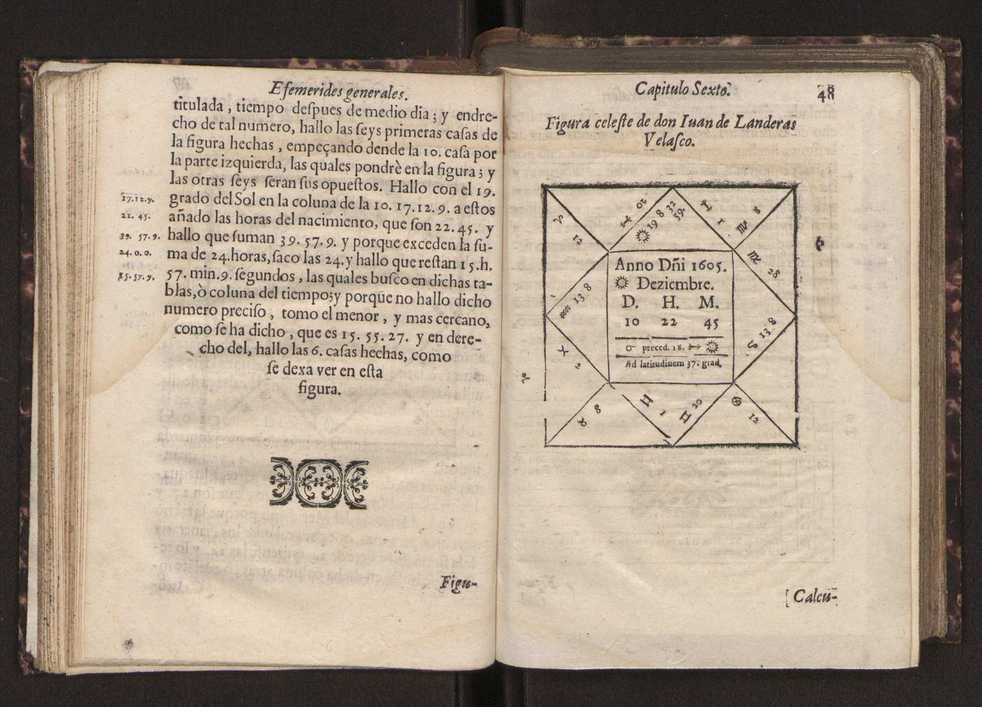 Efemerides generales.
titulada , tiempo despues de medio dia ; y endre-
cho de tal numero, hallo las seys primeras casas de
la figura hechas , empeçando dende la 10. casa por
la parte izquierda, las quales pondrè en la figura ; y
las otras seys seran sus opuestos. Hallo con el 19.
17.12.9. grado del Sol en la coluna de la 10. 17. 12. 9. a estos
22. 45. añado las horas del nacimiento, que son 22. 45. y
39. 57.9. hallo que suman 39. 57. 9. y porque exceden la su-
24. 0. 0. ma de 24. horas, saco las 24. y hallo que restan 15. h.
15. 57. 9. 57. min. 9. segundos , las quales busco en dichas ta-
blas, ò coluna del tiempo; y porque no hallo dicho
numero preciso , tomo el menor , y mas cercano,
como se ha dicho , que es 15. 55. 27. y en dere-
cho del, hallo las 6. casas hechas, como
se dexa ver en esta
figura.
Figu-
Capitulo Sexto.
48
Figura celeste de don Iuan de Landeras
Velasco.
♑ 12
♐ 01
☼ 19 8
32
39.
♐ 1
♏ 8
♏ 28
♒ 13 8
Anno Dñi 1605.
☼ Deziembre.
D. H. M.
10 22 45
☌ preced. 18. ♐ ☼
Ad latitudinem 37. grad.
8 31
♓
♉ 8
♊ 1
♊ 20
⊕ 12
[Calcu-